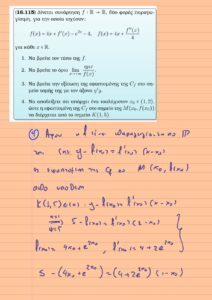 (16.115) Δίνεται συνάρτηση f : ℝ → ℝ, δύο φορές παραγωγίσιμη, για την οποία ισχύουν:
f(x) − 4x + f'(x) − e²ˣ − 4, f(x) − 4x + f''(x)/4
για κάθε x ∈ ℝ.
1. Να βρείτε τον τύπο της f.
2. Να βρείτε το όριο lim ημx/f(x)
3. Να βρείτε την εξίσωση της εφαπτομένης της Cf στο σημείο τομής της με τον άξονα y'y.
4. Να αποδείξετε ότι υπάρχει ένα τουλάχιστον x₀ ∈ (1, 2), ώστε η εφαπτομένη της Cf στο σημείο της M(x₀, f(x₀)) να διέρχεται από το σημείο K(1, 5)
④ Αφού η f είναι παραγωγίσιμη στο ℝ
(ε): y − f(x₀) = f'(x₀) (x − x₀)
η εφαπτομένη της Cf στο M(x₀, f(x₀))
K(1,5) ∈ (ε): y − f(x₀) = f'(x₀) (x − x₀)
x=1 y=5 5 − f(x₀) = f'(x₀) (1 − x₀)
f(x₀) = 4x₀ + e^{2x₀}, f'(x₀) = 4 + 2e^{2x₀}
5 − (4x₀ + e^{2x₀}) = (4 + 2e^{2x₀}) (1 − x₀)